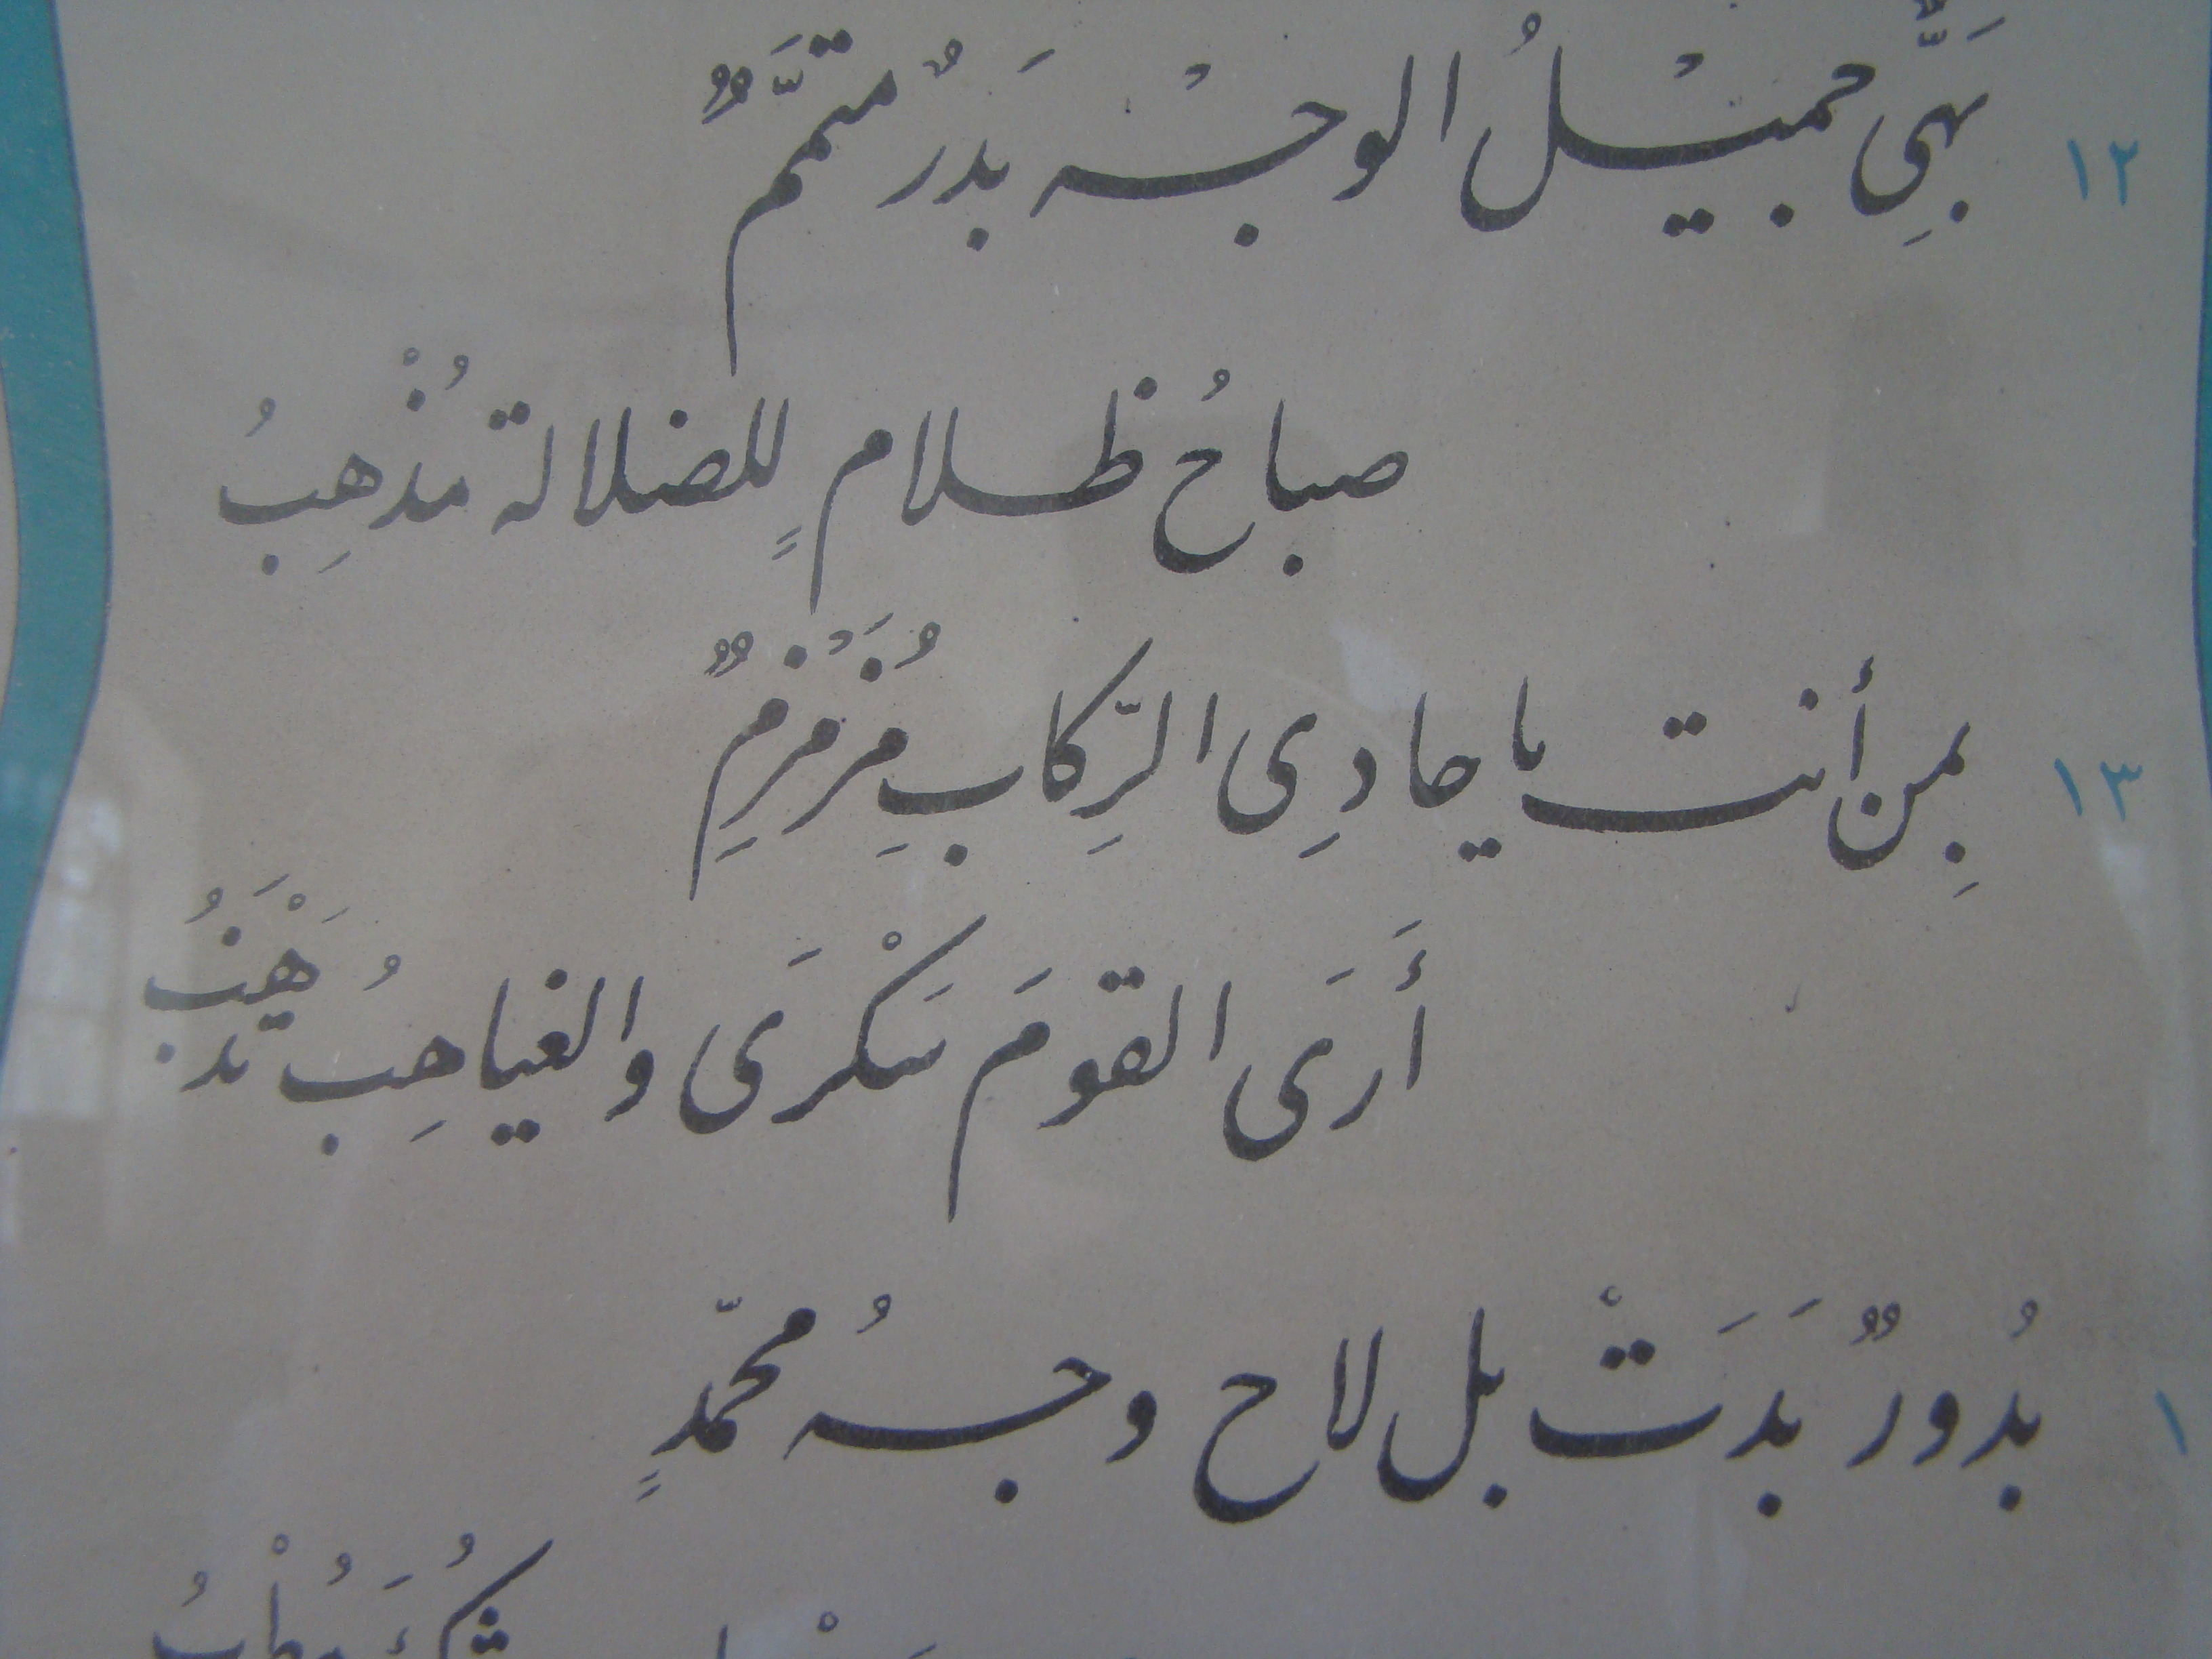 ١٢ بَهِّىِ جميْلُ الوجْهَ بَدرٌ متمَّمٌ
صباحُ ظلامٍ للضلالة مُذْهِبُ
١٣ بِمن أنت يا حادِى الرِّكابِ مُزَمْزِمٌ
أَرَى القومَ سَكْرَى والغياهِبُ
١ بُدورٌ بَدَتْ بل لاح وجهُ محمّدٍ